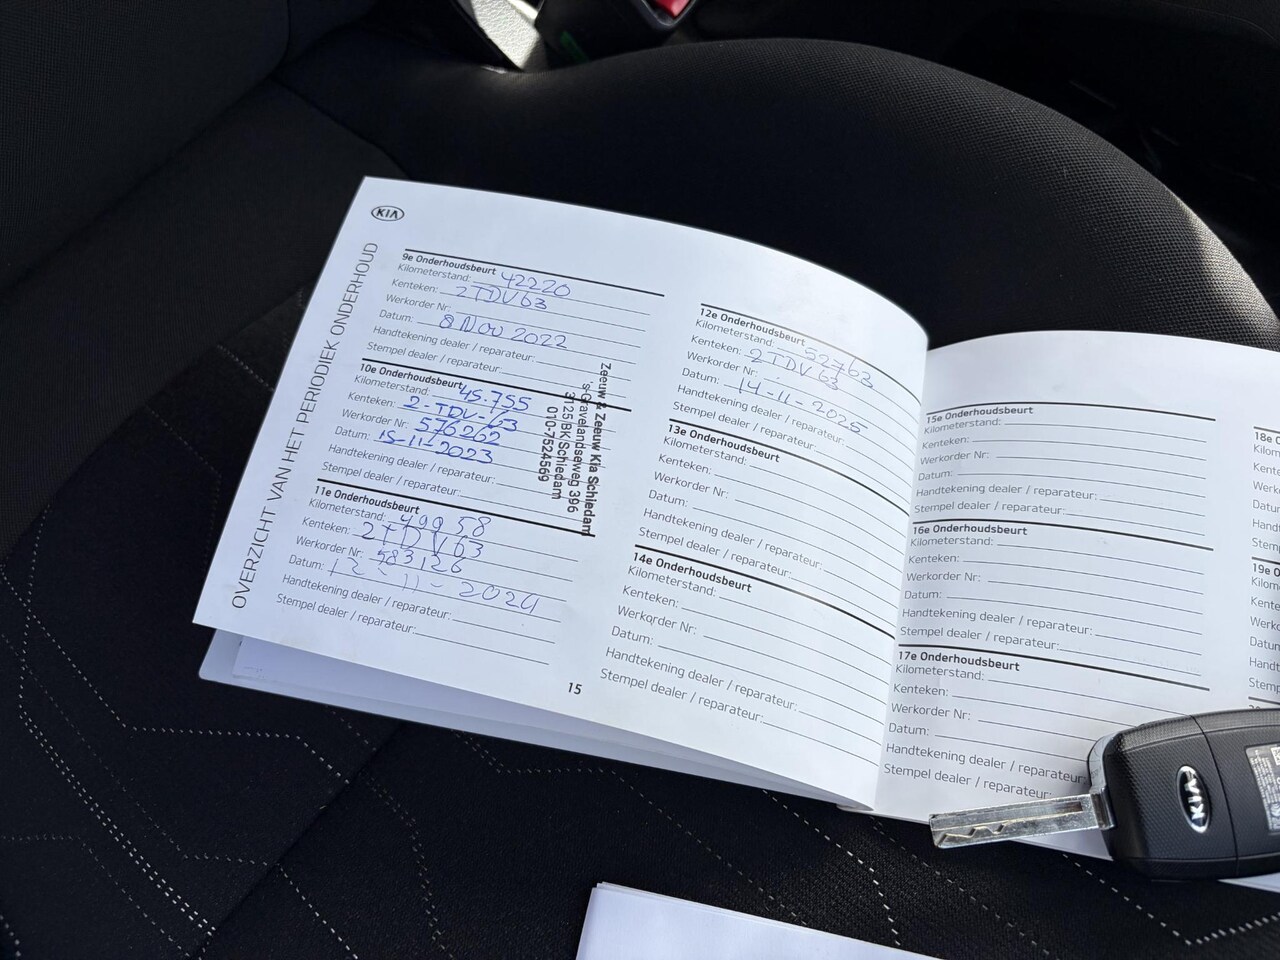 KIA
OVERZICHT VAN HET PERIODIEK ONDERHOUD
9e Onderhoudsbeurt
Kilometerstand: 42220
Kenteken: 2TDV63
Werkorder Nr:
Datum: 8 Nov 2022
Handtekening dealer / reparateur:
Stempel dealer / reparateur:
10e Onderhoudsbeurt
Kilometerstand: 45.755
Kenteken: 2-TDV-63
Werkorder Nr: 576262
Datum: 15-11-2023
Handtekening dealer / reparateur:
Stempel dealer / reparateur:
Zeeuw & Zeeuw Kia Schiedam
's-Gravelandseweg 396
3125/BK/Schiedam
010-7524569
11e Onderhoudsbeurt
Kilometerstand: 49958
Kenteken: 2TDV63
Werkorder Nr: 583126
Datum: 12-11-2024
Handtekening dealer / reparateur:
Stempel dealer / reparateur:
15
12e Onderhoudsbeurt
Kilometerstand: 52763
Kenteken: 2TDV63
Werkorder Nr:
Datum: 14-11-2025
Handtekening dealer / reparateur:
Stempel dealer / reparateur:
13e Onderhoudsbeurt
Kilometerstand:
Kenteken:
Werkorder Nr:
Datum:
Handtekening dealer / reparateur:
Stempel dealer / reparateur:
14e Onderhoudsbeurt
Kilometerstand:
Kenteken:
Werkorder Nr:
Datum:
Handtekening dealer / reparateur:
Stempel dealer / reparateur:
15e Onderhoudsbeurt
Kilometerstand:
Kenteken:
Werkorder Nr:
Datum:
Handtekening dealer / reparateur:
Stempel dealer / reparateur:
16e Onderhoudsbeurt
Kilometerstand:
Kenteken:
Werkorder Nr:
Datum:
Handtekening dealer / reparateur:
Stempel dealer / reparateur:
17e Onderhoudsbeurt
Kilometerstand:
Kenteken:
Werkorder Nr:
Datum:
Handtekening dealer / reparateur:
Stempel dealer / reparateur:
18e
19e
KIA